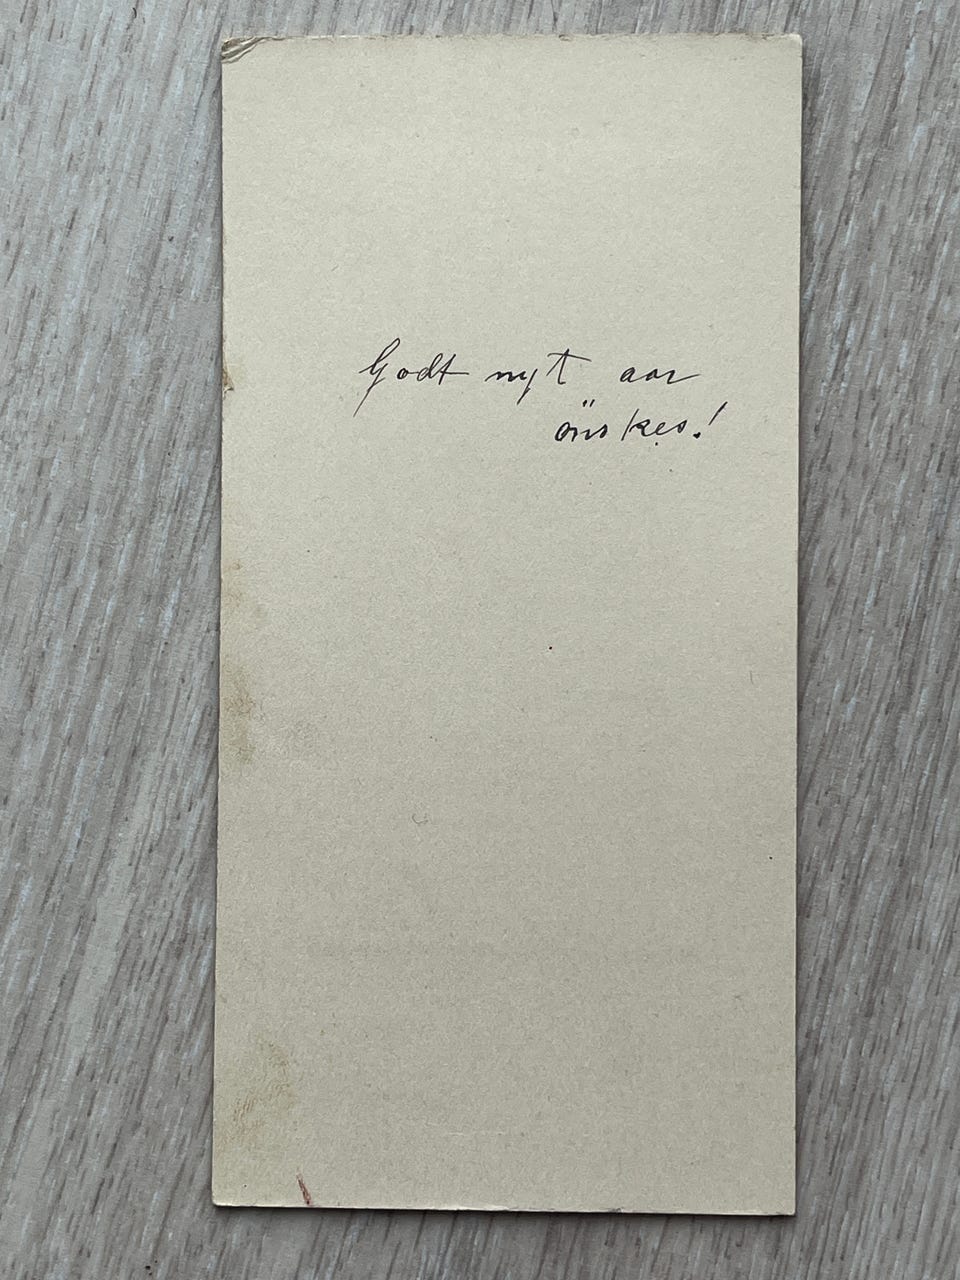 Godt nyt aar
önskes!